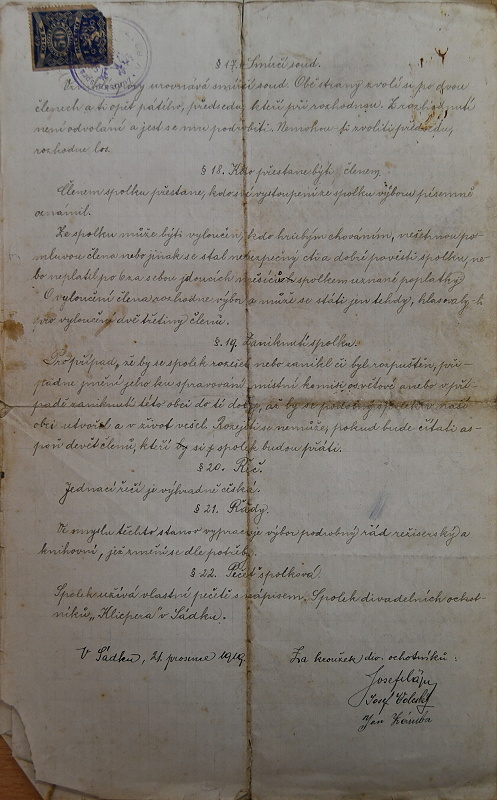 50
§ 17. Smírčí soud.
urovnává smírčí soud. Obě strany zvolí si po dvou
členech a ti opět pátého, předsedu, kteří při rozhodnou. Z rozhodnutí
není odvolání a jest se mu podrobiti. Nemohou-li zvoliti předsedu,
rozhodne los.
§ 18. Kdo přestane býti členem.
Členem spolku přestane, kdo své vystoupení ze spolku výboru písemně
oznámil.
Ze spolku může býti vyloučen, kdo hrubým chováním, nešetrnou po-
mluvou člena nebo jinak se stal nebezpečný cti a dobré pověsti spolku, ne-
bo neplatil po 6 za sebou jdoucích měsících spolkem uznané poplatky.
O vyloučení člena rozhodne výbor a může se státi jen tehdy, hlasovaly-li
pro vyloučení dvě třetiny členů.
§ 19. Zaniknutí spolku.
Pro případ, že by se spolek rozešel nebo zanikl či byl rozpuštěn, při-
padne jmění jeho ku spravování místní komisi osvětové anebo v pří-
padě zaniknutí této obci do té doby, až by se podobný spolek v naší
obci utvořil a v život vešel. Rozejíti se nemůže, pokud bude čítati as-
poň devět členů, kteří by si spolek budou přáti.
§ 20. Řeč.
Jednací řečí je výhradně česká.
§ 21. Řády.
Ve smyslu těchto stanov vypracuje výbor podrobný řád režisérský a
knihovní, jež změní se dle potřeby.
§ 22. Pečeť spolková.
Spolek užívá vlastní pečetě s nápisem: Spolek divadelních ochot-
níků „Klicpera" v Sádku.
V Sádku, 21. prosince 1919.
Za kroužek div. ochotníků:
Josef
Josef
Jan